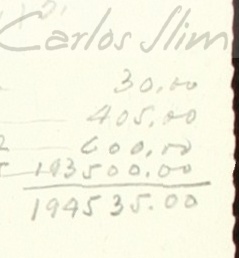 Carlos Slim
30.00
405.00
600.00
193500.00
194535.00